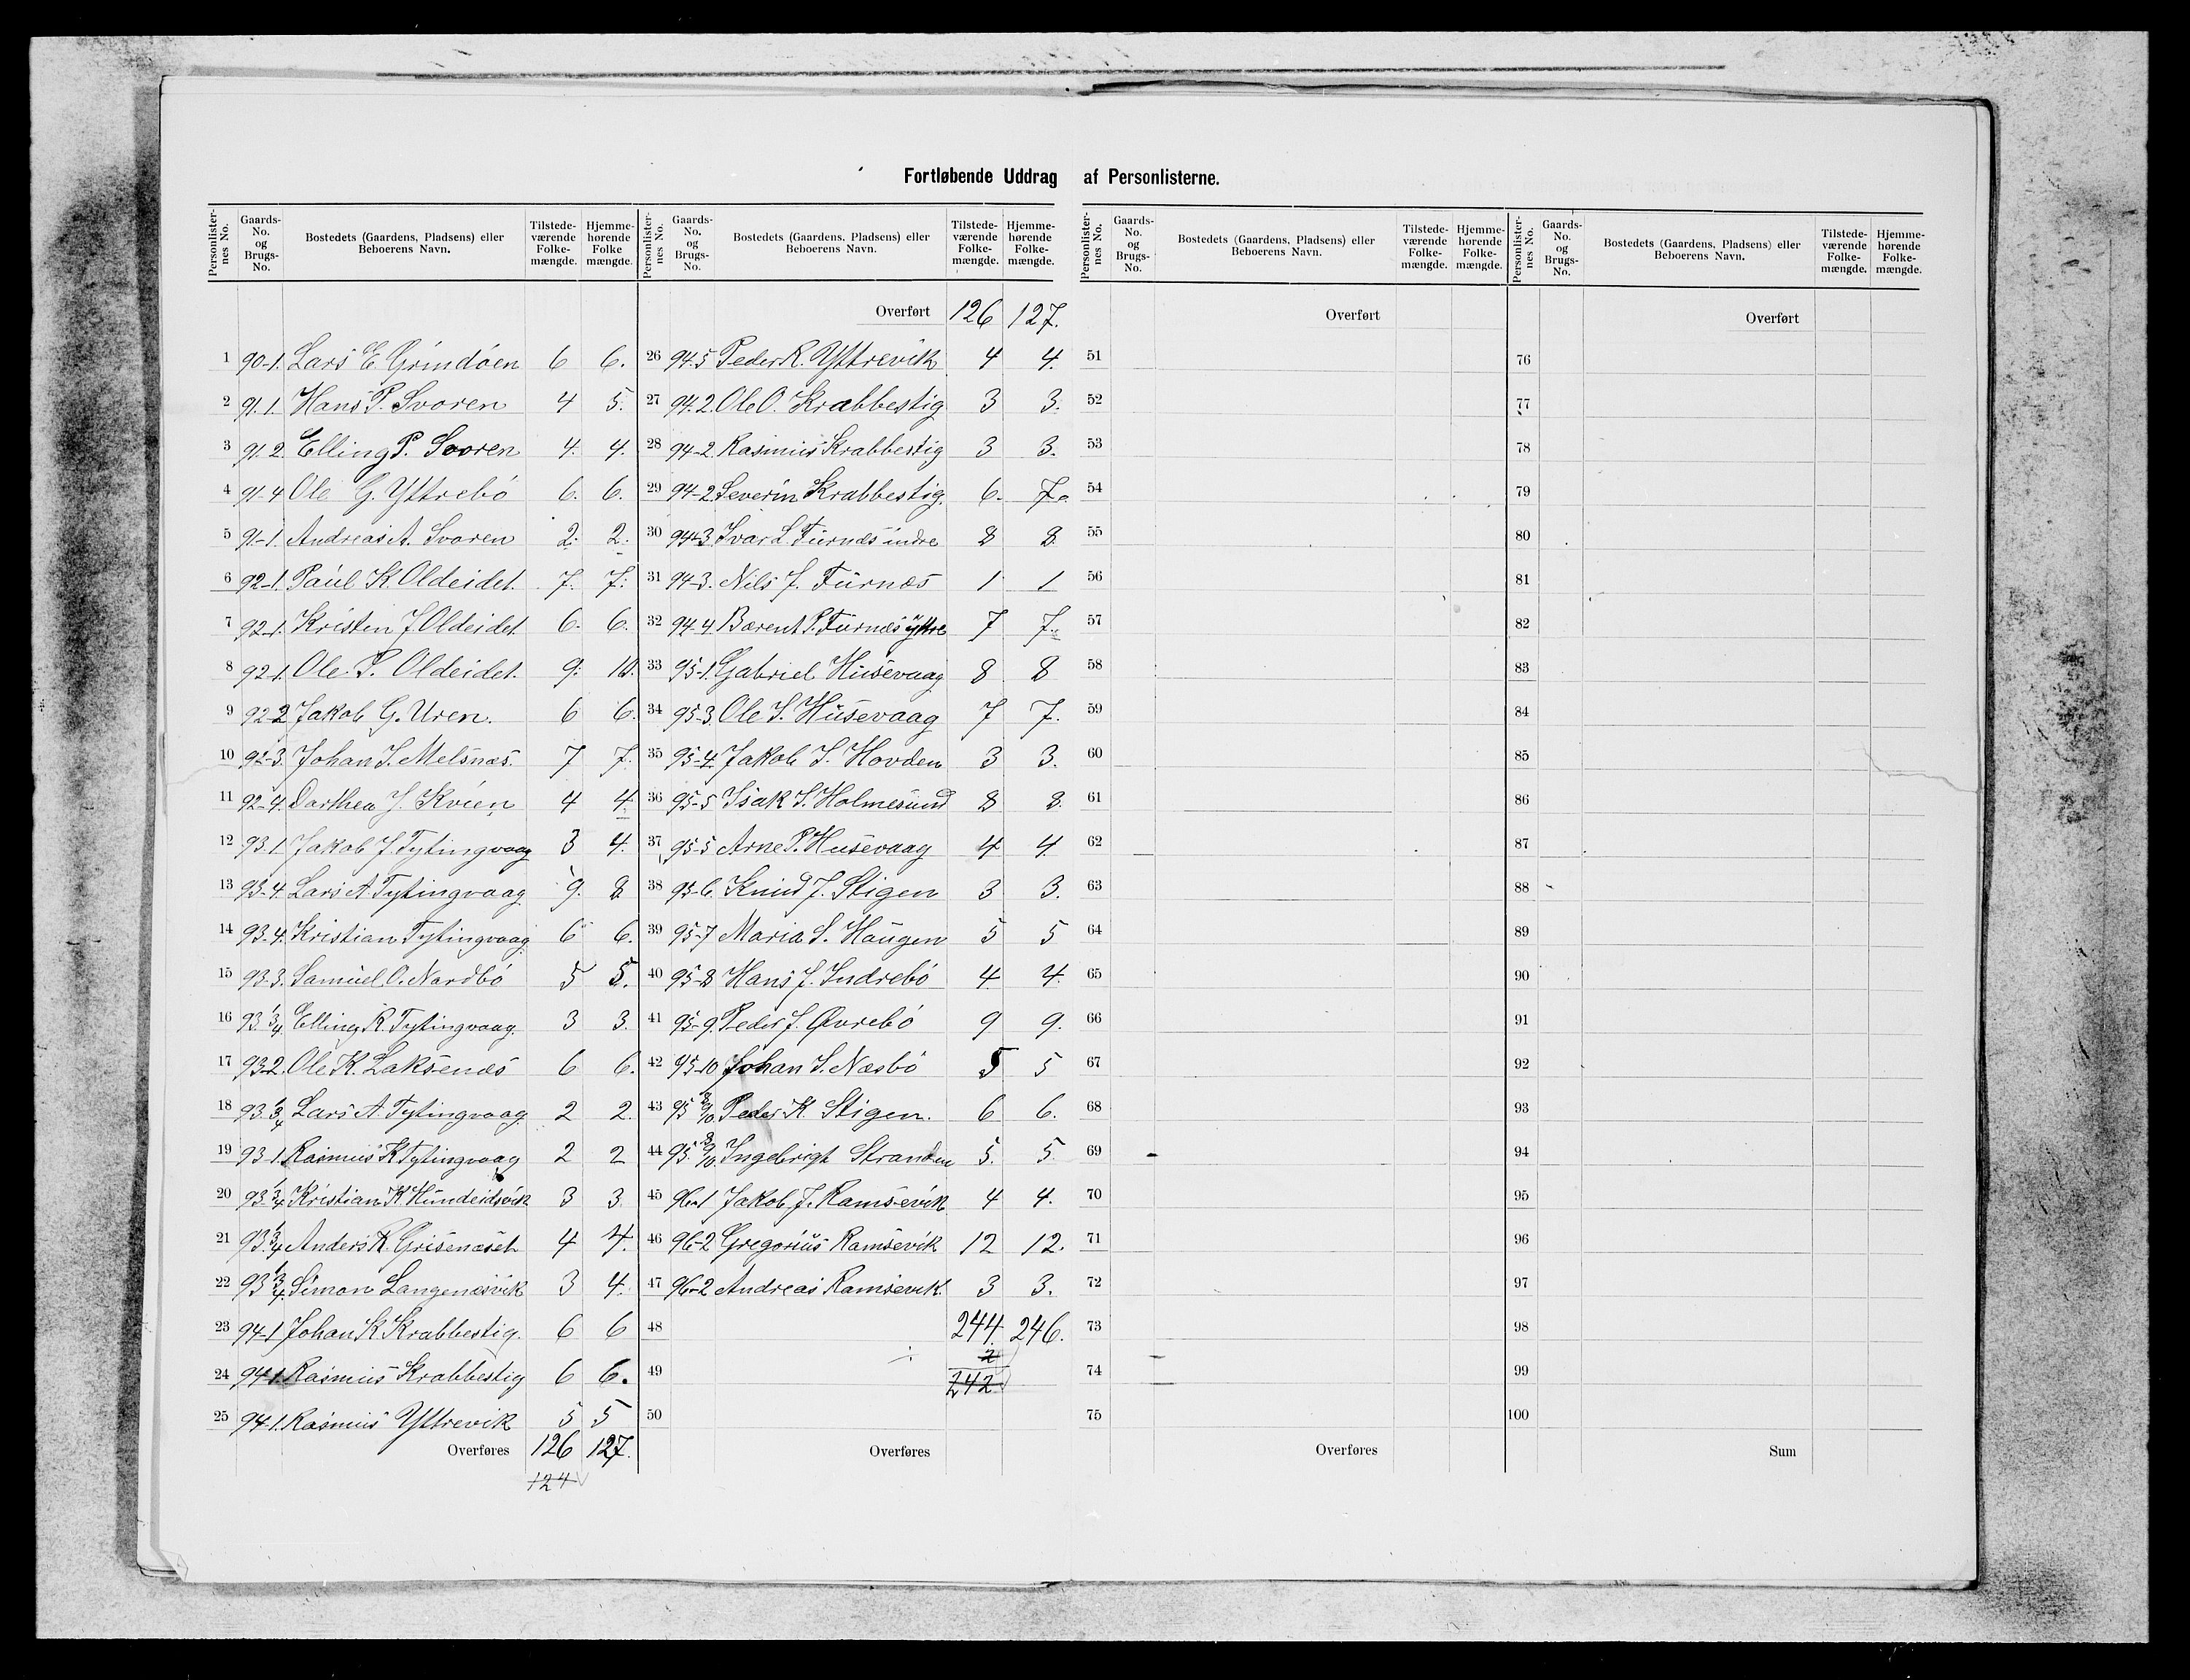 Fortløbende Uddrag af Personlisterne.
Personlister-nes No. Gaards-No. og Brugs-No. Bostedets (Gaardens, Pladsens) eller Beboerens Navn. Tilstede-værende Folke-mængde. Hjemme-hørende Folke mængde.
1 90-1. Lars E Grindöen 6 6.
2 91.1. Hans P. Svoren 4 5.
3 91.2 Elling P. Svoren 4. 4.
4 91-4 Ole G. Yttrebö 6. 6.
5 91-1. Andreas A. Svoren 2. 2.
6 92-1. Paul K. Oldeidet. 7. 7.
7 92-1. Kristen J Oldeidet 6. 6.
8 92-1. Ole P. Oldeidet. 9. 10.
9 92-2 Jakob G. Uren. 6 6.
10 92-3. Johan S. Melsnæs. 7 7.
11 92-4. Darthea J. Kvien 4 4.
12 93.1 Jakob J. Tytingvaag 3 4.
13 93-4. Lars A. Tytingvaag 9. 8
14 93-4. Kristian Tytingvaag. 6 6.
15 93-3. Samuel O. Nordbö 5 5.
16 93.1/3/4 Elling R. Tytingvaag. 3 3.
17 93-2. Ole K. Laksenæs 6 6.
18 93.1/3/4 Lars A. Tytingvaag 2 2.
19 93-1. Rasmus K Tytingvaag 2 2
20 93.1/3/4 Kristian K Hundeidsvik 3 3
21 93.1/3/4 Anders R. Grisenæset 4 4.
22 93 1/3/4. Simon Langenæsvik 3 4.
23 94-1 Johan K Krabbestig. 6 6
24 94-1. Rasmus Krabbestig 6 6.
25 94-1. Rasmus Yttrevik 5 5
Overføres 126 127.
124
Personlister-nes No. Gaards-No. og Brugs-No. Bostedets (Gaardens, Pladsens) eller Beboerens Navn. Tilstede-værende Folke-mængde. Hjemme-hørende Folke-mængde.
Overført 126 127.
26 94.5 Peder R. Yttrevik 4 4.
27 94.2. Ole O. Krabbestig 3 3.
28 94-2. Rasmus Krabbestig 3 3.
29 94-2 Severin Krabbestig. 6. 7.
30 94-3. Ivar L. Furnæs indre 8 8
31 94-3. Nils J. Furnæs 1 1
32 94-4. Bærent P. Furnæs yttre 7 7.
33 95-1. Gabriel Husevaag 8 8
34 95-3. Ole S. Husevaag 7 7.
35 95-4. Jakob S. Hovden 3 3.
36 95-5 Isak S. Holmesund 8 8.
37 95-5 Arne P. Husevaag 4 4
38 95-6. Knud J. Stigen 3 3.
39 95-7 Maria S. Haugen 5 5
40 95-8 Hans J. Indrebö 4 4.
41 95-9. Peder J. Øvrebö 9 9.
42 95-10 Johan S. Næsbö 5 5
43 95 8/9/10. Peder K. Stigen. 6 6.
44 95. 8/9/10. Ingebrigt Stranden 5. 5.
45 96-1 Jakob J. Ramsevik 4 4.
46 96-2 Gregorius Ramsevik 12 12.
47 96-2 Andreas Ramsevik. 3 3.
48 244. 246.
49 ÷ 2
242
50
Overføres
Personlister-nes No. Gaards-No. og Brugs-No. Bostedets (Gaardens, Pladsens) eller Beboerens Navn. Tilstede-værende Folke-mængde. Hjemme-hørende Folke-mængde.
Overført
51
52
53
54
55
56
57
58
59
60
61
62
63
64
65
66
67
68
69
70
71
72
73
74
75
Overføres
Personlister-nes No. Gaards-No. og Brugs-No. Bostedets (Gaardens, Pladsens) eller Beboerens Navn. Tilstede-værende Folke-mængde. Hjemme-hørende Folke-mængde.
Overført
76
77
78
79
80
81
82
83
84
85
86
87
88
89
90
91
92
93
94
95
96
97
98
99
100
Sum